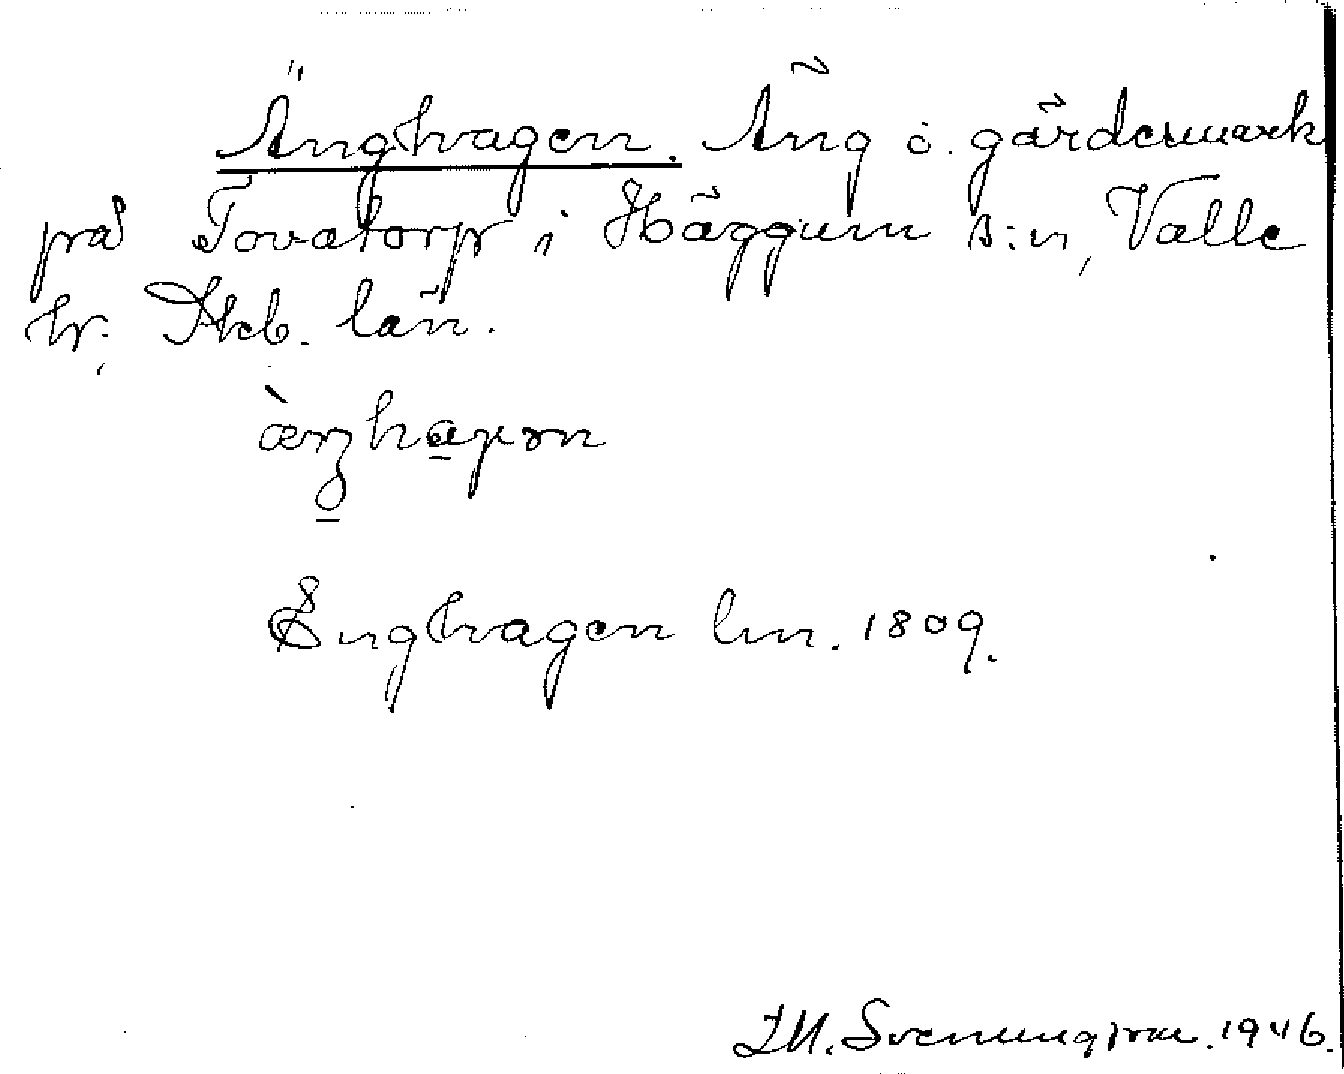 Änghagen. Äng o. gärdesmark
på Tovatorp i Häggum s:n, Valle
hr. Skb. län.
æŋhaɣən
Enghagen lm. 1809.
I.M. Svenningsson. 1946.